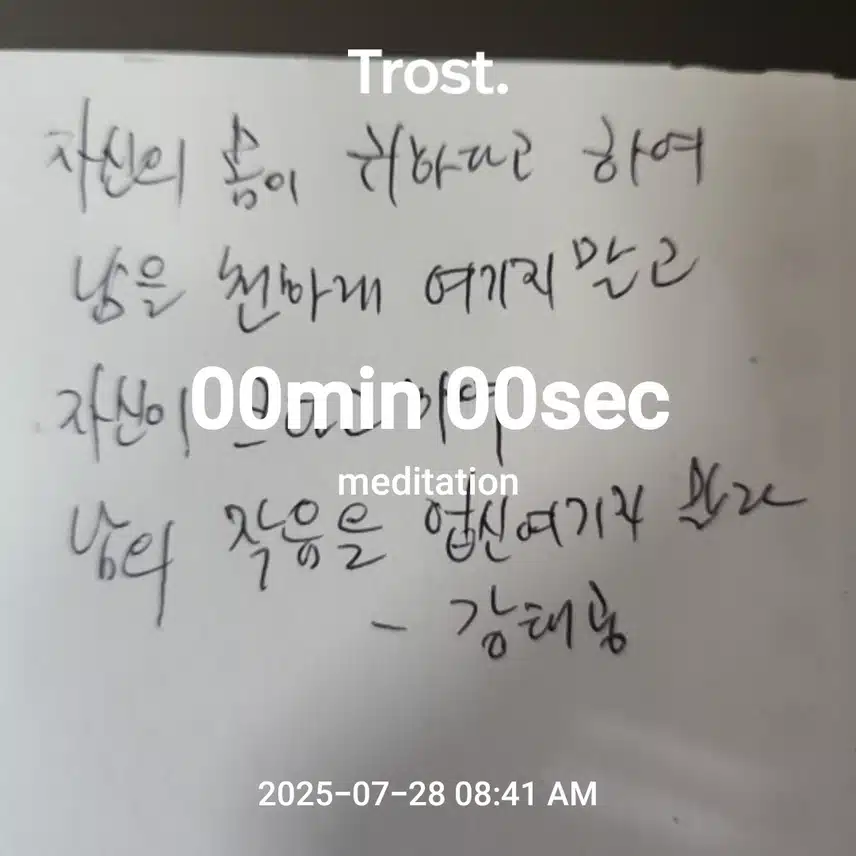 Trost.
자신의 몸이 귀하다고 하여
남은 천하게 여기지 말고
00min 00sec
자신이 하여
meditation
남의 작음을 업신여기지 말라
- 강태공
2025-07-28 08:41 AM